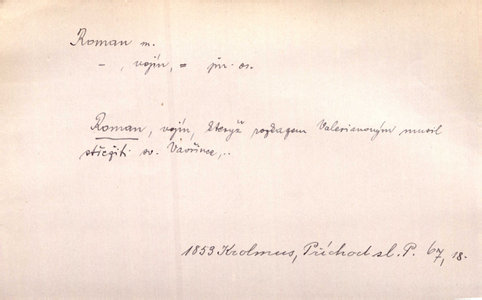 Roman m.
– , vojín, = jm. os.
Roman, vojín, kterýž rozkazem Valerianovým musil
střežiti sv. Vavřince,..
1853 Krolmus, Příchod sl. P. 67, 18.